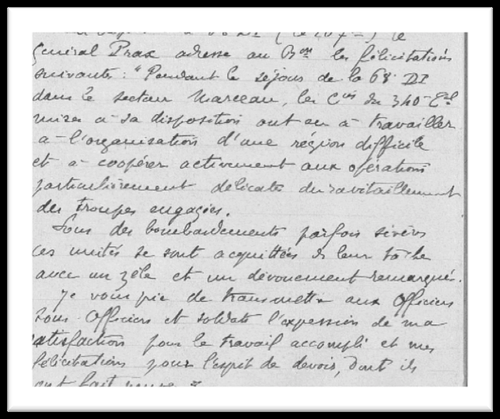 68e DI (le 207e) le
Général Prax adresse au Bon les félicitations
suivantes : "Pendant le séjour de la 68e DI
dans le secteur Marceau, les Cies du 340e Tal
mises à sa disposition ont eu à travailler
à l'organisation d'une région difficile
et à coopérer activement aux opérations
particulièrement délicates du ravitaillement
des troupes engagées.
Sous des bombardements parfois sévères
ces unités se sont acquittées de leur tâche
avec un zèle et un dévouement remarqué.
Je vous prie de transmettre aux Officiers
Sous Officiers et soldats l'expression de ma
satisfaction pour le travail accompli et mes
félicitations pour l'esprit de devoir, dont ils
ont fait preuve"